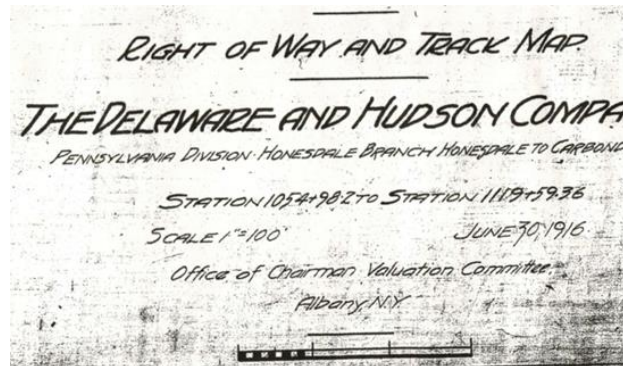 RIGHT OF WAY AND TRACK MAP.
THE DELAWARE AND HUDSON COMPA
PENNSYLVANIA DIVISION-HONESDALE BRANCH HONESDALE TO CARBOND
STATION 1054+98.2 TO STATION 1119+59.36
SCALE 1"=100' JUNE 30, 1916.
Office of Chairman Valuation Committee
Albany, N.Y.